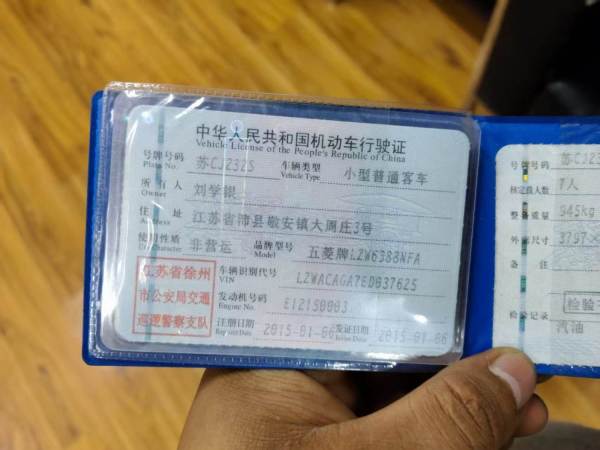 中华人民共和国机动车行驶证
Vehicle License of the People's Republic of China
号牌号码 苏CJ232S 车辆类型 小型普通客车
Plate No. Vehicle Type
所有人 刘学银
Owner
住址 江苏省沛县敬安镇大周庄3号
Address
使用性质 非营运 品牌型号 五菱牌LZW6388NFA
Use Character Model
江苏省徐州
市公安局交通
巡逻警察支队
车辆识别代号 LZWACAGA7ED037625
VIN
发动机号码 E12150003
Engine No.
注册日期 2015-01-06 发证日期 2015-01-06
Register Date Issue Date
号牌号码 苏CJ232
核定载人数 7人
整备质量 945kg
外廓尺寸 3797×
备注
检验
检验记录
汽油